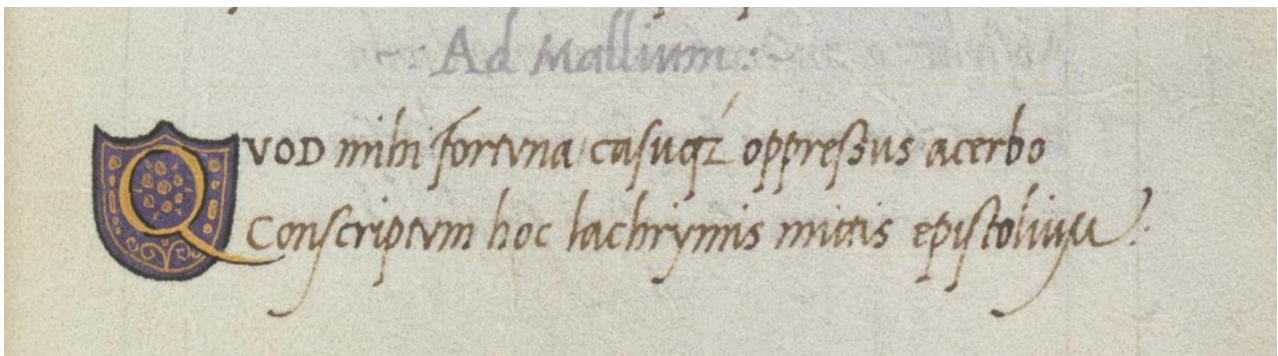 : Ad Mallium :
QVOD mihi fortvna casuqꝫ oppressus acerbo
Conscriptvm hoc lachrymis mittis epistolium :